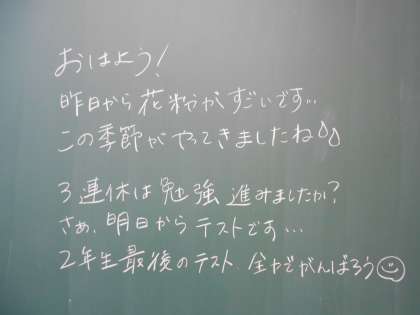 おはよう!
昨日から花粉がすごいです…
この季節がやってきましたね
3連休は勉強進みましたか?
さぁ、明日からテストです…
2年生最後のテスト、全力でがんばろう